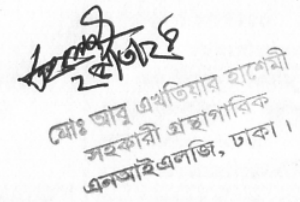 মোঃ আবু এখতিয়ার হাশেমী
সহকারী গ্রন্থাগারিক
এনআইএলজি, ঢাকা।